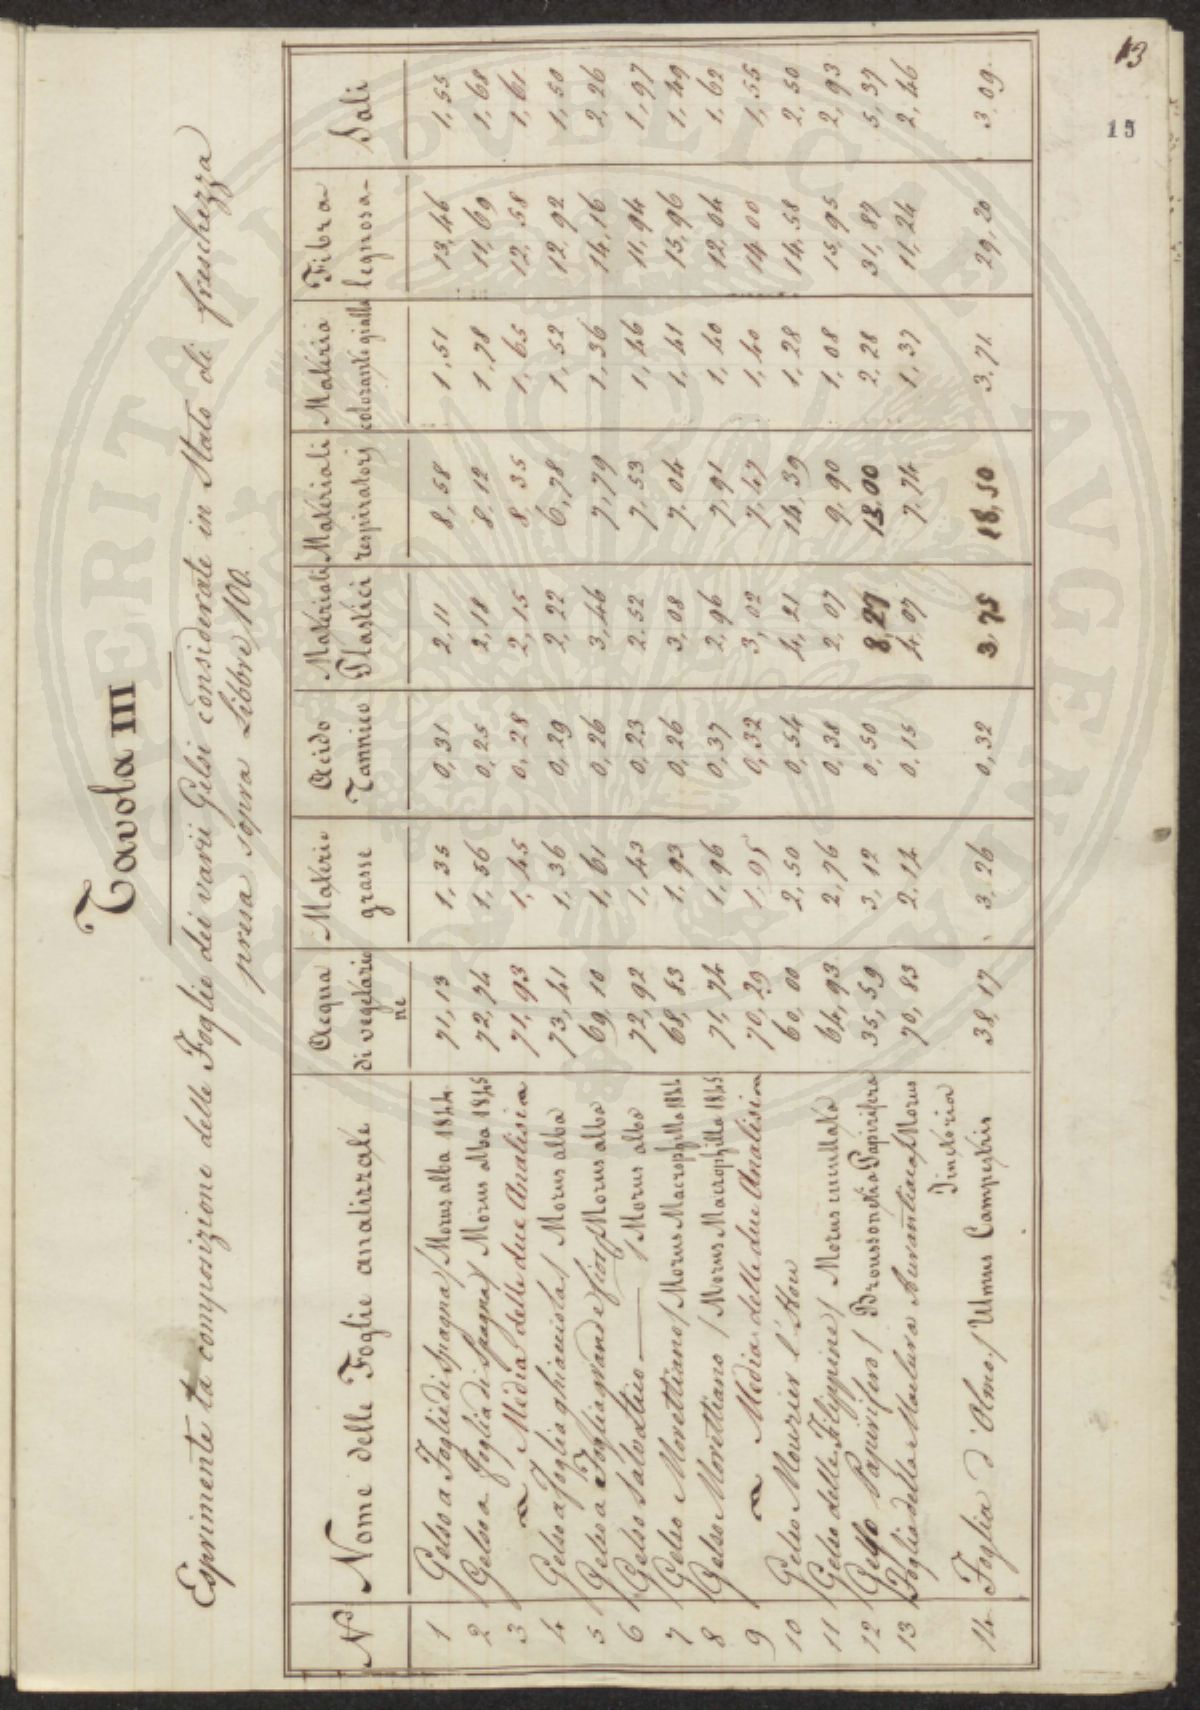 13
15
Tavola III
Esprimente la composizione delle Foglie dei varii Gelsi considerate in Stato di freschezza
presa sopra Libbre 100.
N° | Nome delle Foglie analizzate | Acqua di vegetazione | Materie grasse | Acido Tannico | Materiali Plastici | Materiali respiratorj | Materia colorante gialla | Fibra legnosa | Sali
1 | Gelso a Foglia di Spagna / Morus alba 1844 | 71,13 | 1,35 | 0,31 | 2,11 | 8,58 | 1,51 | 13,46 | 1,55
2 | Gelso a foglia di Spagna / Morus alba 1845 | 72,74 | 1,56 | 0,25 | 2,18 | 8,12 | 1,78 | 11,69 | 1,68
3 | Media delle due Analisi | 71,93 | 1,45 | 0,28 | 2,15 | 8,35 | 1,65 | 12,58 | 1,61
4 | Gelso a foglia ghiacciola / Morus alba | 73,41 | 1,36 | 0,29 | 2,22 | 6,78 | 1,52 | 12,92 | 1,50
5 | Gelso a Foglia grande / Morus alba | 69,10 | 1,61 | 0,26 | 3,46 | 7,79 | 1,36 | 14,16 | 2,26
6 | Gelso Salvatico — / Morus alba | 72,92 | 1,43 | 0,23 | 2,52 | 7,53 | 1,46 | 11,94 | 1,97
7 | Gelso Morettiano / Morus Macrophilla 1844 | 68,83 | 1,93 | 0,26 | 3,08 | 7,04 | 1,41 | 15,96 | 1,49
8 | Gelso Morettiano / Morus Macrophilla 1845 | 71,74 | 1,96 | 0,37 | 2,96 | 7,91 | 1,40 | 12,04 | 1,62
9 | Media delle due Analisi | 70,29 | 1,95 | 0,32 | 3,02 | 7,47 | 1,40 | 14,00 | 1,55
10 | Gelso Mourier l'Hou | 60,00 | 2,50 | 0,54 | 4,21 | 14,39 | 1,28 | 14,58 | 2,50
11 | Gelso delle Filippine / Morus cucullata | 64,93 | 2,76 | 0,38 | 2,07 | 9,90 | 1,08 | 15,95 | 2,93
12 | Gelso Papirifero / Broussonetia Papirifera | 35,59 | 3,12 | 0,50 | 8,27 | 13,00 | 2,28 | 31,87 | 5,37
13 | Foglia della Maclura Aurantiaca / Morus Tinctoria | 70,83 | 2,14 | 0,15 | 4,07 | 7,74 | 1,37 | 11,24 | 2,46
14 | Foglia d'Olmo / Ulmus Campestris | 38,17 | 3,26 | 0,32 | 3,75 | 18,50 | 3,71 | 29,20 | 3,09